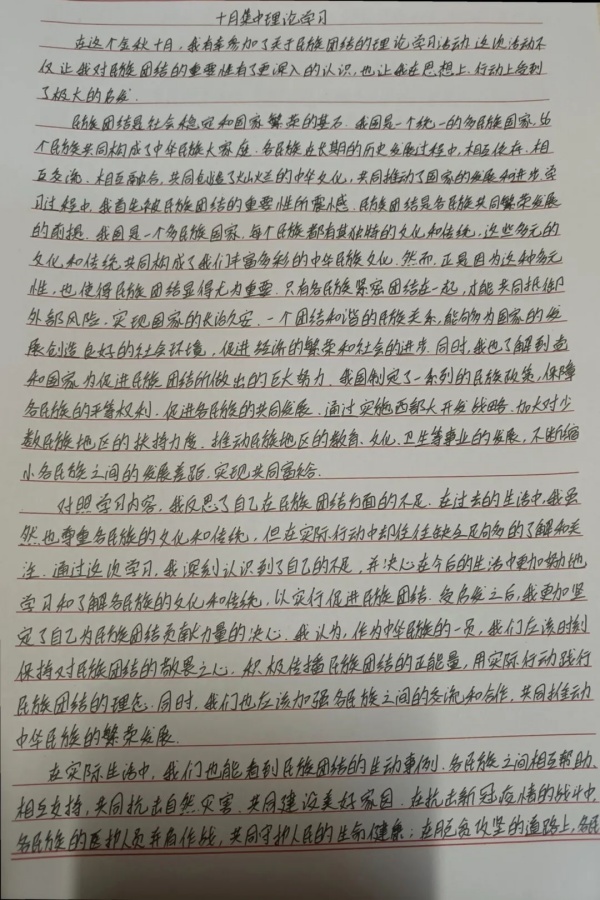 十月集中理论学习
在这个金秋十月,我有幸参加了关于民族团结的理论学习活动.这次活动不
仅让我对民族团结的重要性有了更深入的认识,也让我在思想上.行动上受到
了极大的启发.
民族团结是社会稳定和国家繁荣的基石.我国是一个统一的多民族国家,56
个民族共同构成了中华民族大家庭.各民族在长期的历史发展过程中,相互依存.相
互交流.相互融合,共同创造了灿烂的中华文化,共同推动了国家的发展和进步.学
习过程中,我首先被民族团结的重要性所震撼.民族团结是各民族共同繁荣发展
的前提.我国是一个多民族国家,每个民族都有其独特的文化和传统,这些多元的
文化和传统共同构成了我们丰富多彩的中华民族文化.然而,正是因为这种多元
性,也使得民族团结显得尤为重要.只有各民族紧密团结在一起,才能共同抵御
外部风险,实现国家的长治久安.一个团结和谐的民族关系,能够为国家的发
展创造良好的社会环境,促进经济的繁荣和社会的进步.同时,我也了解到党
和国家为促进民族团结所做出的巨大努力.我国制定了一系列的民族政策,保障
各民族的平等权利.促进各民族的共同发展.通过实施西部大开发战略.加大对少
数民族地区的扶持力度.推动民族地区的教育.文化.卫生等事业的发展,不断缩
小各民族之间的发展差距.实现共同富裕.
对照学习内容,我反思了自己在民族团结方面的不足.在过去的生活中,我虽
然也尊重各民族的文化和传统,但在实际行动中却往往缺乏足够多的了解和关
注.通过这次学习,我深刻认识到了自己的不足,并决心在今后的生活中更加努力地
学习和了解各民族的文化和传统,以实行促进民族团结.受启发之后,我更加坚
定了自己为民族团结贡献力量的决心.我认为,作为中华民族的一员,我们应该时刻
保持对民族团结的敬畏之心.积极传播民族团结的正能量,用实际行动践行
民族团结的理念.同时,我们也应该加强各民族之间的交流和合作,共同推动
中华民族的繁荣发展.
在实际生活中,我们也能看到民族团结的生动事例.各民族之间相互帮助.
相互支持,共同抗击自然灾害.共同建设美好家园.在抗击新冠疫情的战斗中,
各民族的医护人员并肩作战,共同守护人民的生命健康;在脱贫攻坚的道路上,各民